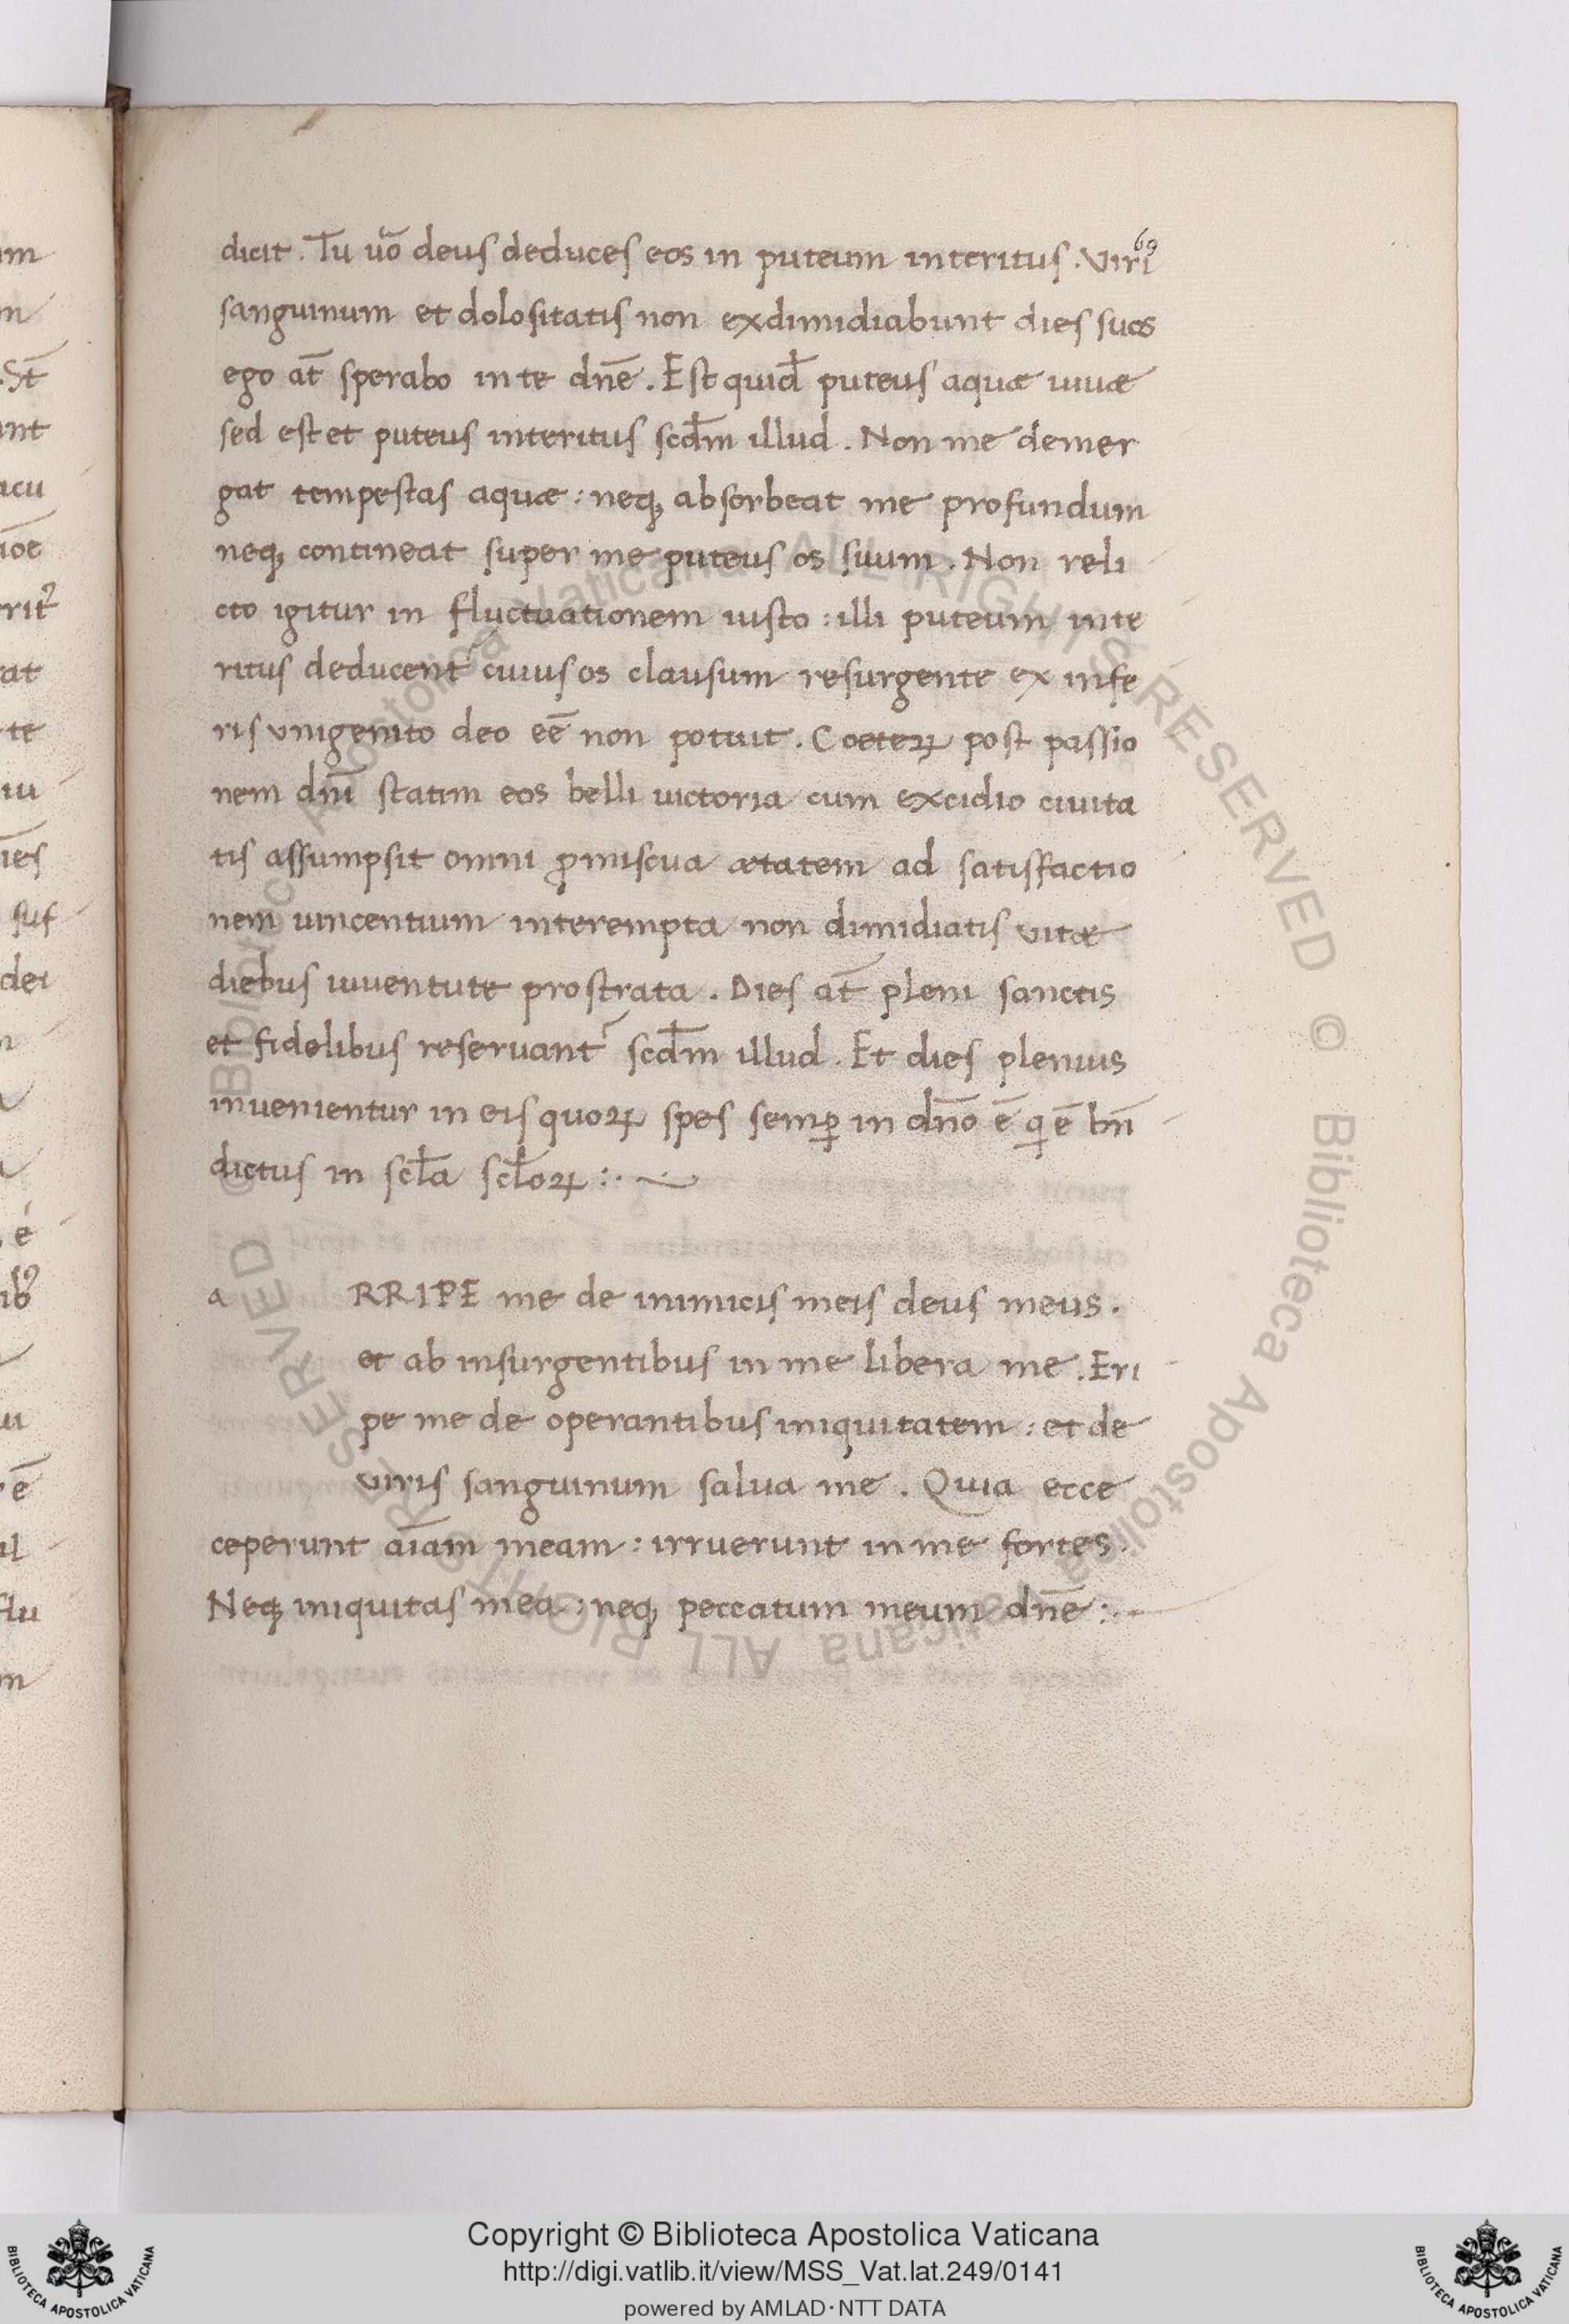 69
dicit. Tu u̅o deus deduces eos in puteum interitus. Viri
sanguinum et dolositatis non exdimidiabunt dies suos
ego at̅ sperabo in te dn̅e. Est quid̅ puteus aquæ uiuæ
sed est et puteus interitus scd̅m illud. Non me demer
gat tempestas aquæ: neq; absorbeat me profundum
neq; contineat super me puteus os suum. Non reli
cto igitur in fluctuationem iusto: illi puteum inte
ritus deducent᷑ cuius os clausum resurgente ex infe
ris vnigenito deo ee̅ non potuit. Coeteꝝ post passio
nem dn̅i statim eos belli uictoria cum excidio ciuita
tis assumpsit omni ꝓmiscua ætatem ad satisfactio
nem uincentium interempta non dimidiatis vitæ
diebus iuuentute prostrata. Dies at̅ pleni sanctis
et fidelibus reseruant᷑ scd̅m illud. Et dies plenius
invenientur in eis quoꝝ spes semꝑ in dn̅o e̅ qi e̅ bn̅
dictus in scl̅a scl̅oꝝ :·~
a RRIPE me de inimicis meis deus meus.
et ab insurgentibus in me libera me. Eri
pe me de operantibus iniquitatem: et de
viris sanguinum salua me. Quia ecce
ceperunt ai̅am meam: irruerunt in me fortes.
Neq; iniquitas mea: neq; peccatum meum dn̅e :·
Copyright © Biblioteca Apostolica Vaticana
http://digi.vatlib.it/view/MSS_Vat.lat.249/0141
powered by AMLAD·NTT DATA